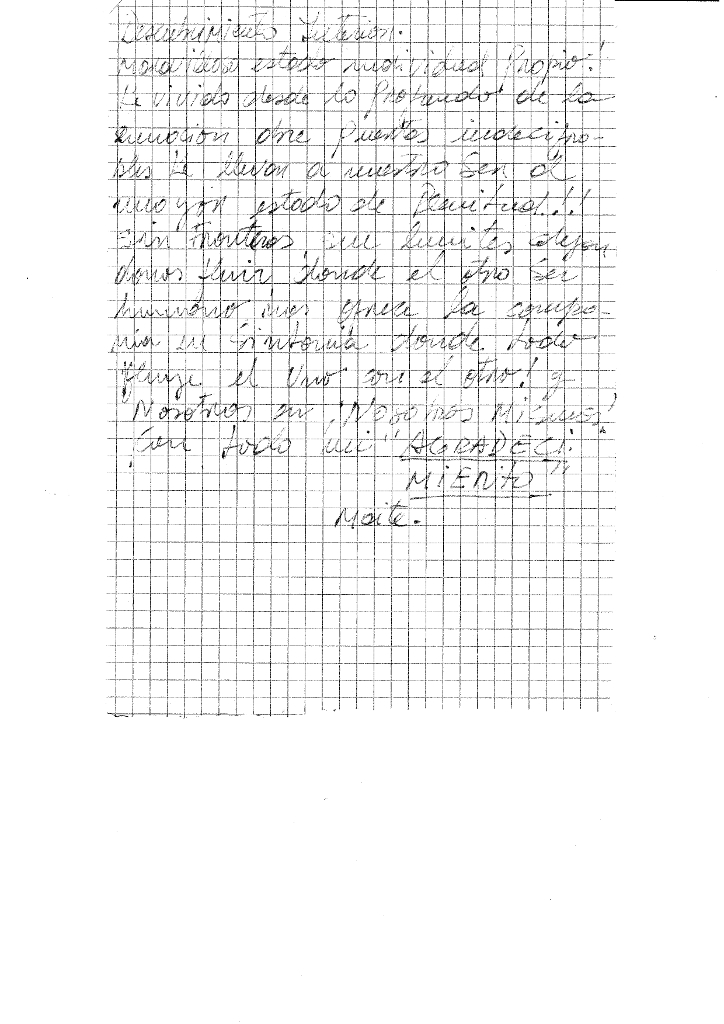 Descubrimiento Interior.
Maravilloso estado individual Propio!
Ke vivido desde lo Profundo de la
emoción abre puertas indecifra-
bles Ke llevan a nuestro Ser al
mayor estado de Plenitud!!
Sin Fronteras, sin limites dejan
donos fluir donde el otro Ser
humano nos ofrece la compa-
ñia en Sintonía donde todo
fluye el Uno con el otro! y
Nosotros en ¡Nosotros Mismos!
Con todo mi "AGRADECI-
MIENTO"
Maite.